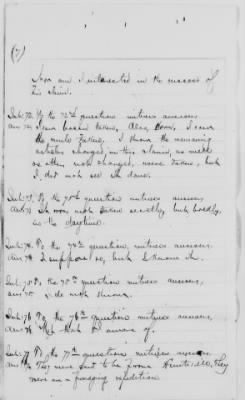 (7)
nor am I interested in the success of
his claim.
Int. 72. To the 72nd question witness answers
Ans 72 I saw bacon taken, Also, corn. I saw
the mule taken, I know the remaining
articles charged in this claim, as mules
or other were charged, were taken, but
I did not see it done.
Int. 73. To the 73d question witness answers.
Ans 73 It was not taken secretly, but boldly,
in the daytime.
Int. 74. To the 74th question, witness answers.
Ans 74 I suppose so, but I know it.
Int. 75. To the 75th question witness answers,
Ans 75 I do not know.
Int. 76 To the 76th question witness answers
Ans 76 Not that I'm aware of.
Int. 77 To the 77th question witness answers.
Ans 77 They were said to be from Huntsville, They
were on a foraging expedition